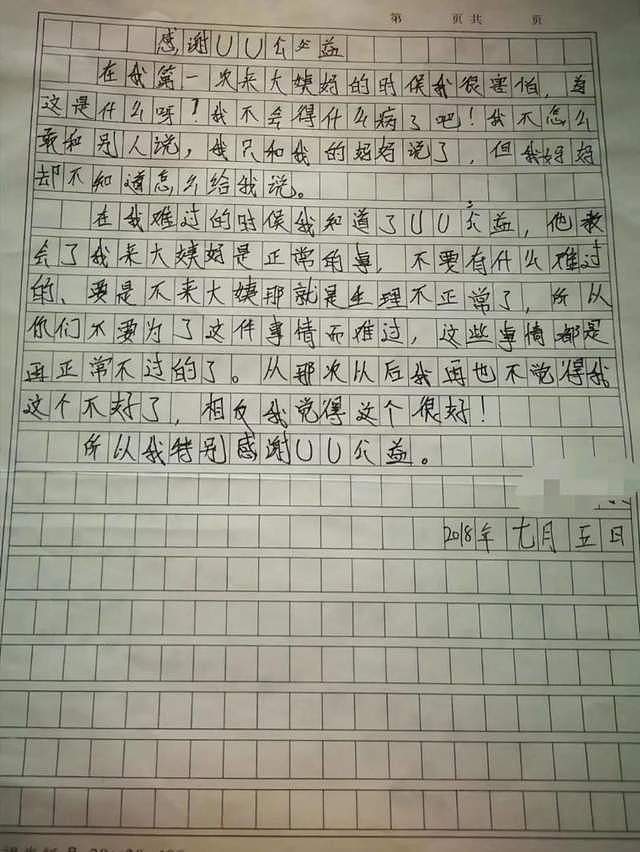 第 页共 页
感谢UU公益
在我第一次来大姨妈的时候我很害怕，
这是什么呀！我不会得什么病了吧！我不怎么
敢和别人说，我只和我的妈妈说了，但我妈妈
却不知道怎么给我说。
在我难过的时候我知道了UU公益，他教
会了我来大姨妈是正常的事，不要有什么难过
的、要是不来大姨那就是生理不正常了，所以
你们不要为了这件事情而难过，这些事情都是
再正常不过的了。从那次以后我再也不觉得我
这个不好了，相反我觉得这个很好！
所以我特别感谢UU公益。
2018年七月五日